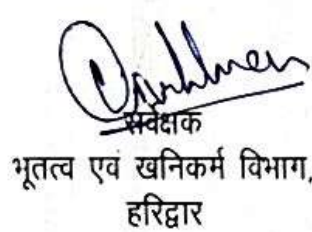 सर्वेक्षक
भूतत्व एवं खनिकर्म विभाग,
हरिद्वार